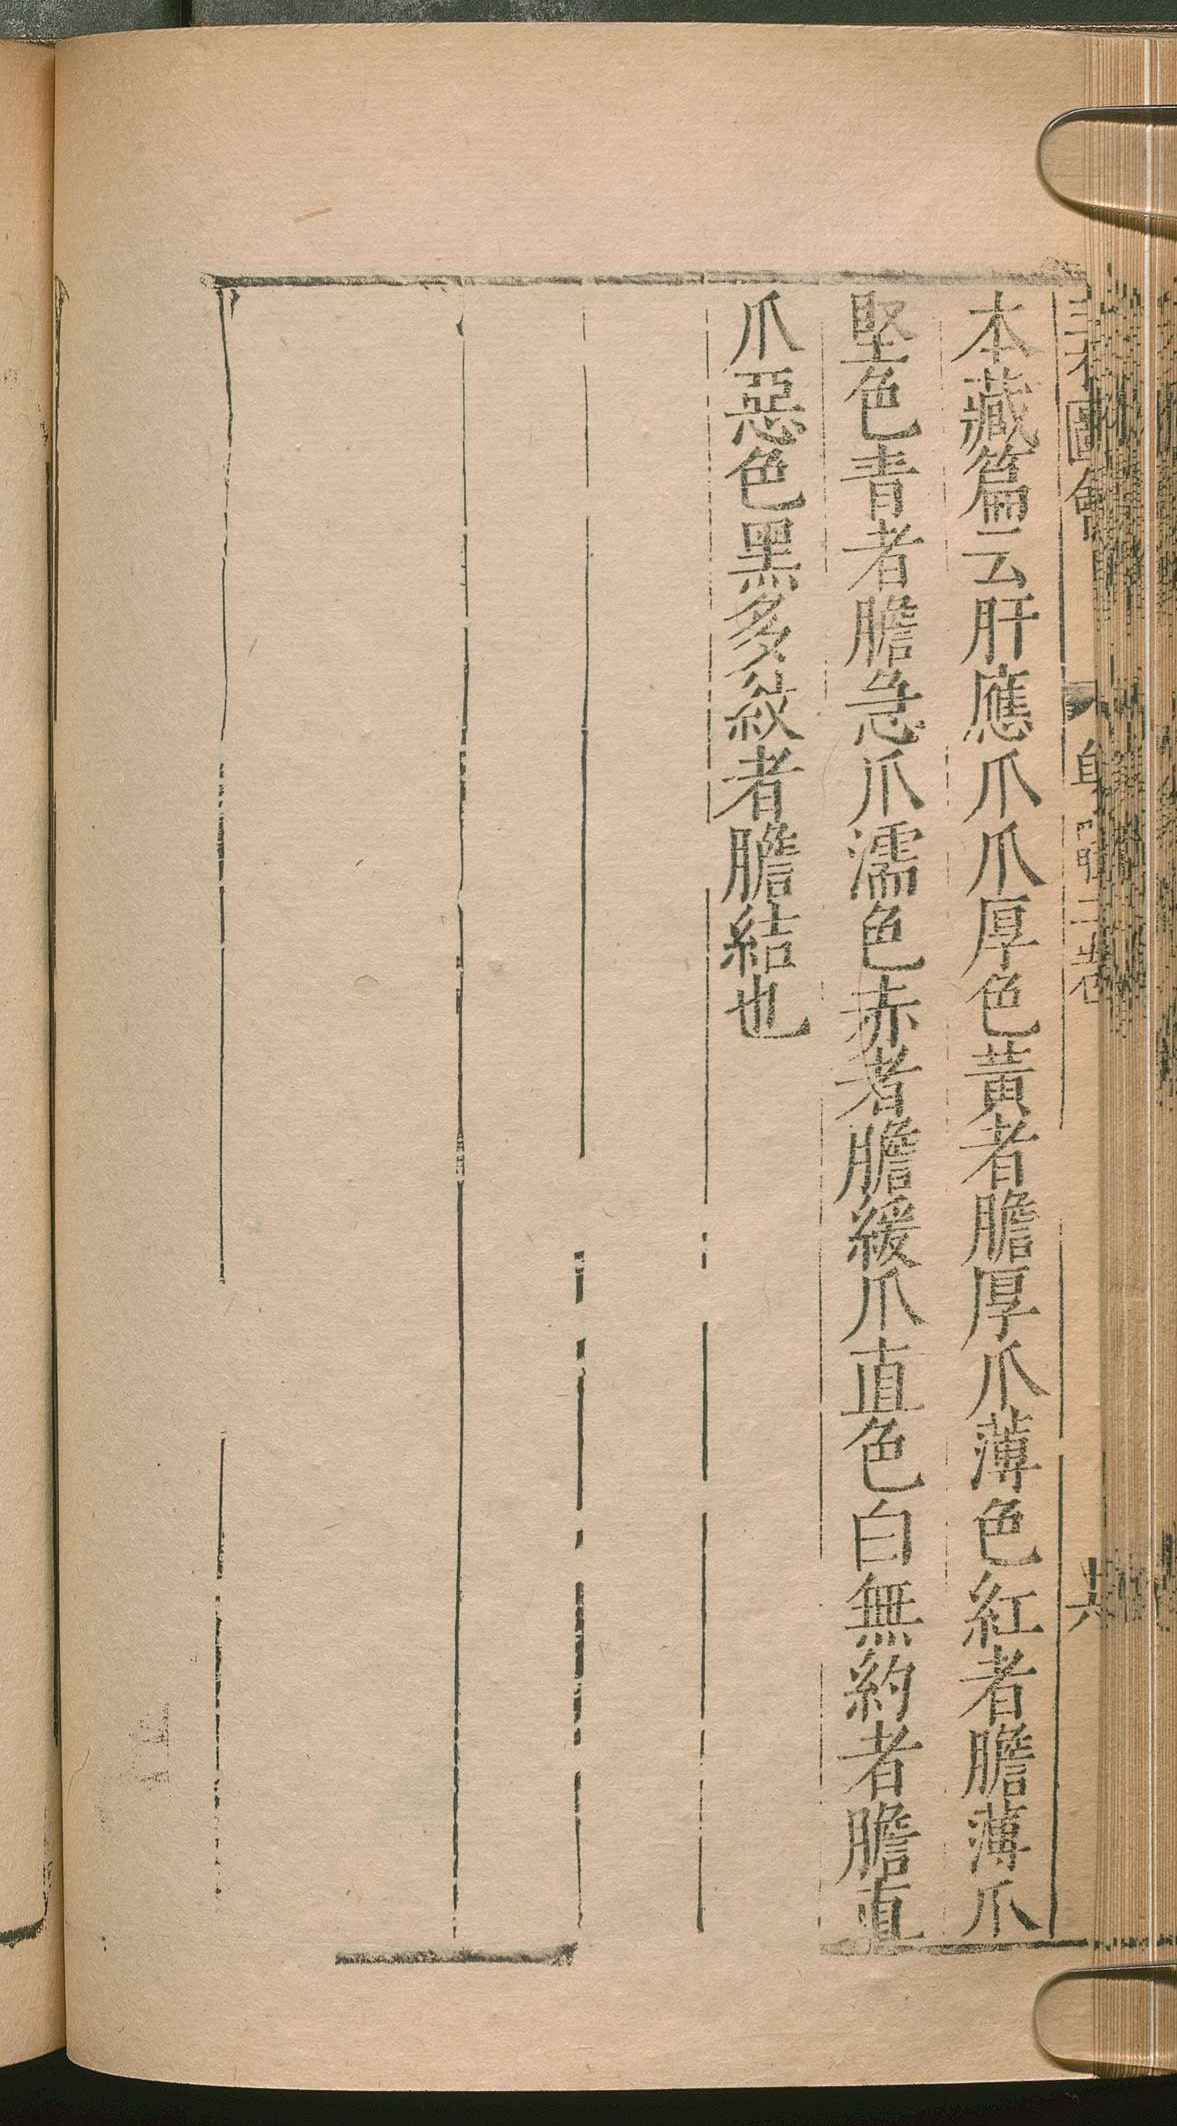 本藏篇云肝應爪爪厚色黃者膽厚爪薄色紅者膽薄爪
堅色青者膽急爪濡色赤者膽緩爪直色白無約者膽直
爪惡色黑多紋者膽結也